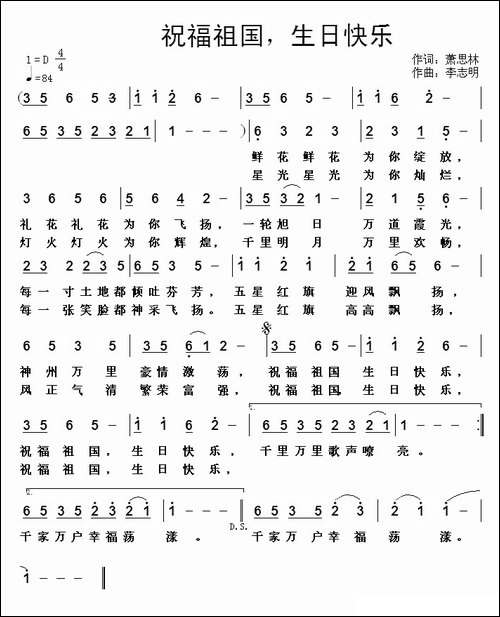 祝福祖国，生日快乐
1=D 4/4
♩=84
作词：萧思林
作曲：李志明
(3 5 6 5 3 | 1 1 2 6 - | 3 5 6 5 6 5 - | 1 1 2 6 - |
6 5 3 5 2 3 2 1 | 1 - - - ) | 6 3 2 3 - | 2 3 1 5 - |
鲜花鲜花 为你绽放，
星光星光 为你灿烂，
3 6 5 6 | 5 6 4 2 - | 3 5 3 2 1 - | 2 1 5 6 - |
礼花礼花为你飞扬，一轮旭日 万道霞光，
灯火灯火为你辉煌，千里明月 万里欢畅，
2 3 2 2 3 5 | 6 3 5 2 - | 1 2 1 1 - | 2 1 6 5 6 - |
每一寸土地都倾吐芬芳，五星红旗 迎风飘扬，
每一张笑脸都神采飞扬。五星红旗 高高飘扬，
5 3 5 3 | 3 5 6 1 2 - | 3 5 6 5 3 | 1 1 6 2 - |
神州万里 豪情激荡，祝福祖国，生日快乐，
风正气清 繁荣富强，祝福祖国，生日快乐，
3 5 6 5 3 | 1 1 6 2 - | 6 5 3 5 2 3 2 1 | 1 - - - :||
祝福祖国，生日快乐，千里万里歌声嘹亮。
祝福祖国，生日快乐，
2.
6 5 3 5 2 3 2 1 | 1 - - - || 6 5 3 5 2 3 2 1 | 1 - - - |
D.S.
千家万户幸福荡漾。千家万户幸福荡漾。
1 - - - ||